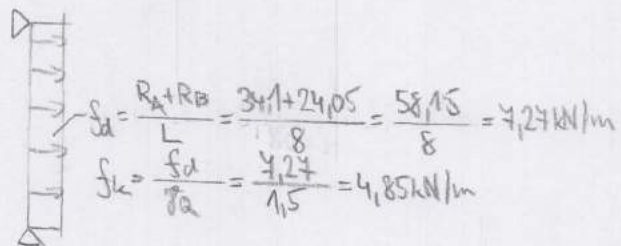 fd = (RA+RB)/L = (34,1+24,05)/8 = 58,15/8 = 7,27kN/m
fk = fd/γQ = 7,27/1,5 = 4,85kN/m